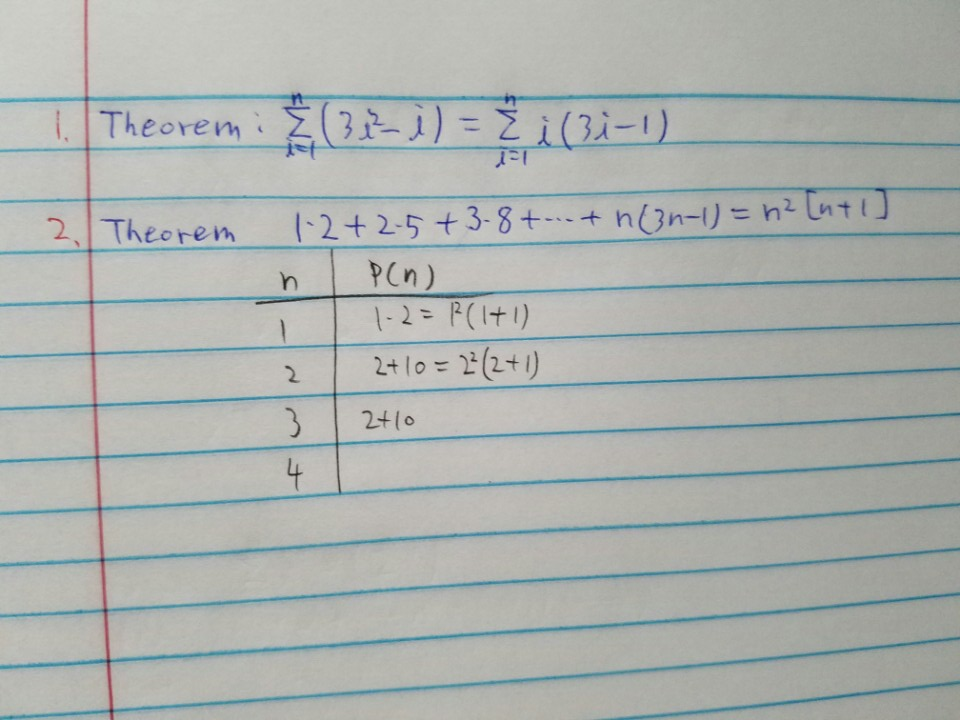 1. Theorem: n∑i=1 (3i²-i) = n∑i=1 i(3i-1)
2. Theorem 1·2+2·5+3·8+···+n(3n-1)=n²[n+1]
n P(n)
1 1·2=1²(1+1)
2 2+10=2²(2+1)
3 2+10
4